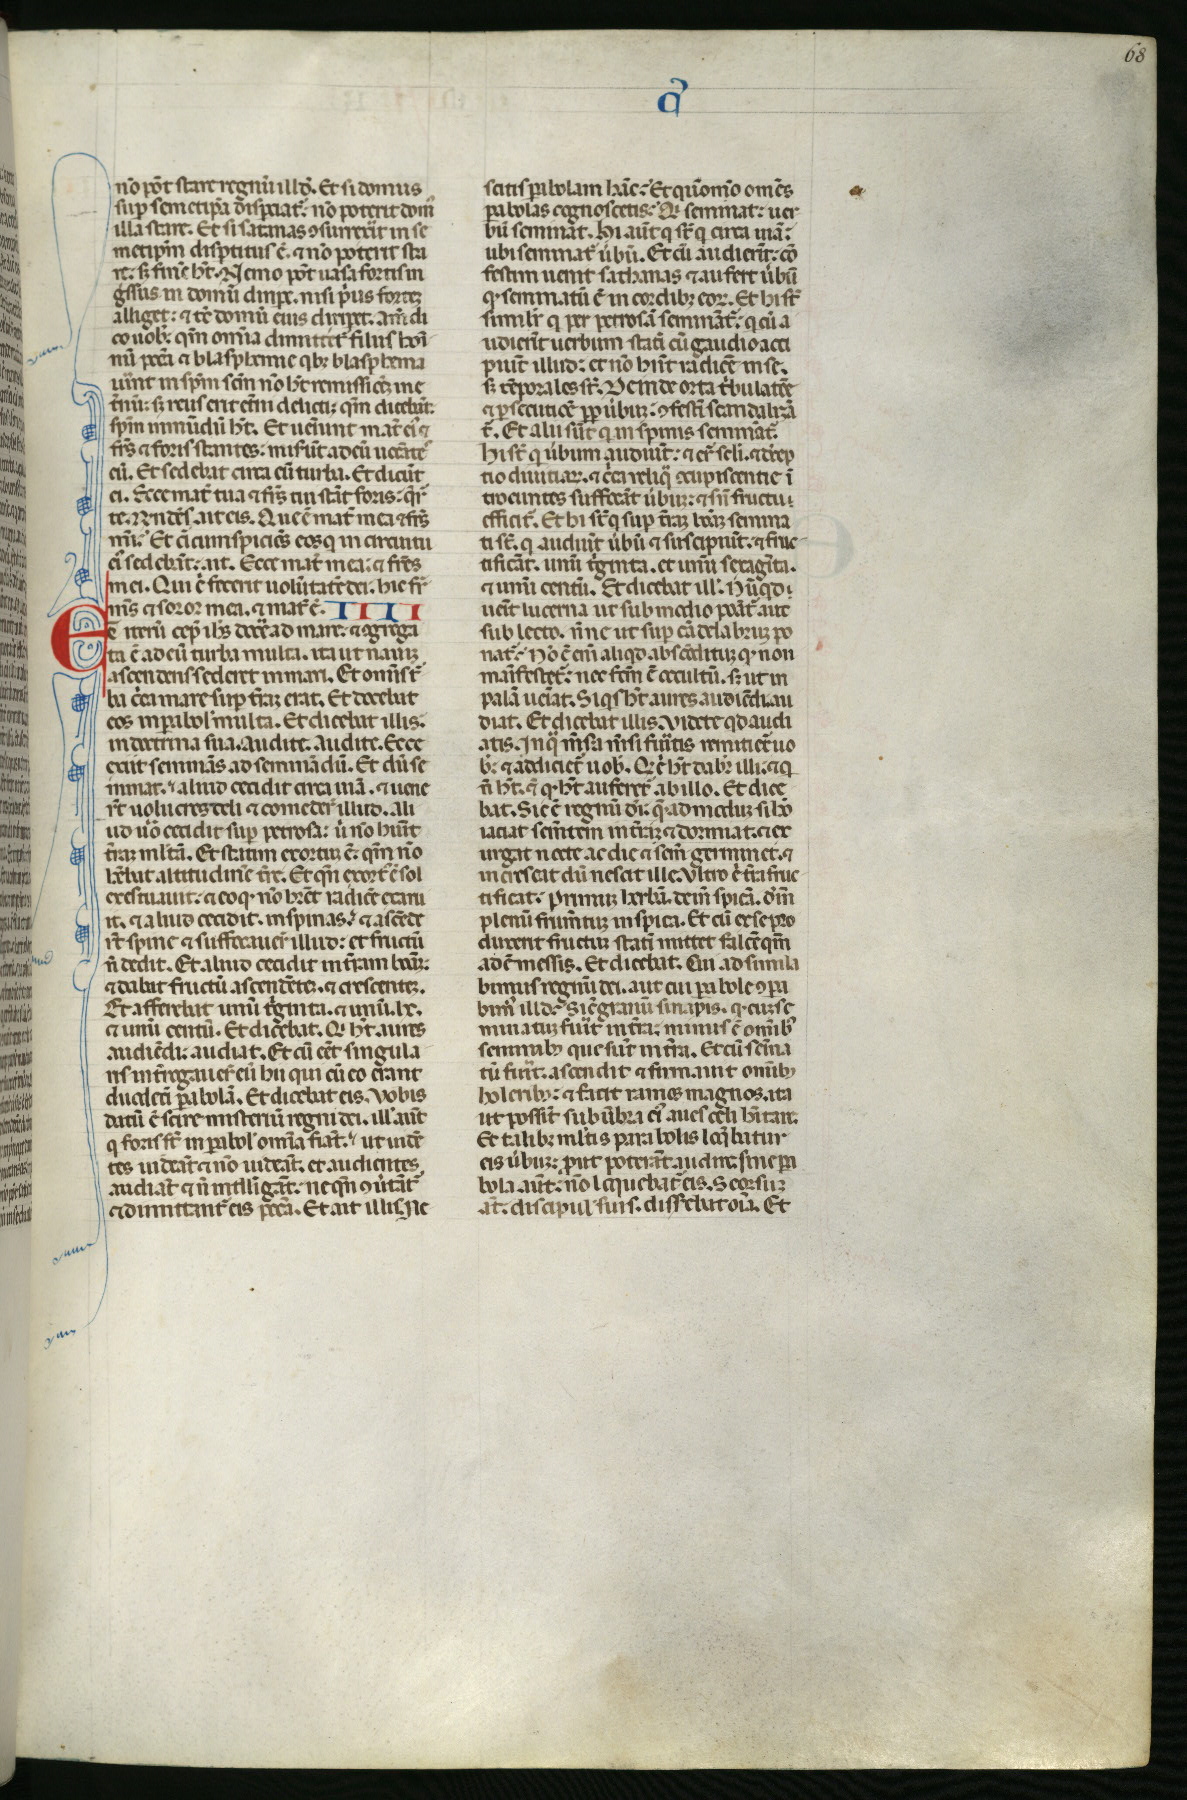 68
q̄
nō pōt stare regnū illď. Et si domus
sup̱ semetip̄a disp̱ciat᷑: nō poterit dom᷒
illa stare. Et si satanas ↄsurrex̄it in se
metip̄m disp̱titus ē. ⁊ nō poterit sta
re. sꝫ finē hꝫ. Nemo pōt uasa fortis in
g̃ssus in domū dirip̱e. nisi p̱us fortem
alliget: ⁊ tc̄ domū eius diripiet. Am̄ di
co uob̄. qm̄ omīa dimittēt᷑ filiis hoī
nū pccā ⁊ blasphemie qbꝫ blasphema
uīnt in spm̄ scm̄ nō hꝫ remissiōeꝫ in e
t̄nū: sꝫ reus erit et̄ni delicti. qm̄ dicebāt:
spm̄ inmūdū hꝫ. Et ueniunt mat̄ ei᷒ ⁊
fr̄s ⁊ foris stantes: misēūt ad eū uocātes
eū. Et sedebat circa eū turba. Et dicūt
ei. Ecce mat̄ tua ⁊ fr̄s tui stāt foris: q̄rūt
te. Rn̄dēs ait eis. Que ē mat̄ mea ⁊ fr̄s
mī: Et cīcūnspiciēs eos q̄ in circuitu
ei᷒ sedebāt: ait. Ecce mat̄ mea: ⁊ fr̄es
mei. Qui ē fecerit voluntatē dei. hic fr̄
m̄s ⁊ soror mea. ⁊ mat̄ ē. IIII
Et iterū cep̄ ihs docē ad mare. ⁊ ↄgrega
ta ē ad eū turba multa. ita ut nauiꝫ
ascendens sederet in mari. Et omīs t̄
ba c̄ca mare sup̱ t̄raꝫ erat. Et docebat
eos in parabol' multa. Et dicebat illis.
in doctrina sua. Audite. Audite. Ecce
exiit seminās ad seminādū. Et dū se
minat. aliud cecidit circa uiā. ⁊ uene
r̄t uolucres celi ⁊ comeder̄ illud. Ali
ud ūo cecidit sup̱ petrosa: ū nō hūit
t̄raꝫ ml̄tā. Et statim exortū ē. qm̄ nō
hēbat altitudinē t̄re. Et qn̄ exort᷒ ē sol
exestuauit: ⁊ eo q̄ nō hr̄et radicē exaru
it. ⁊ aliud cecidit in spinas. ⁊ ascēde
r̄t spine ⁊ suffocauer̄ illud: et fructū
n̄ dedit. Et aliud cecidit in t̄ram bonā:
⁊ dabat fructū ascendētē. ⁊ crescentē.
Et afferebat unū t̄ginta. ⁊ unū. lx.
⁊ unū centū. Et dicebat. Qi hꝫ aures
audiēdi: audiat. Et cū eēt singula
ris int̄rogauer̄ eū hii qui cū eo erant
duodeci pabolā. Et dicebat eis. Vobis
datū ē scire misteriū regni dei. Ill' aūt
q̄ foris st̄ in pabol' omīa fiāt. ut uidē
tes uideāt ⁊ nō uideāt. et audientes
audiāt ⁊ n̄ int̄lligāt. ne qn̄ ↄūtāt᷑
⁊ dimittant᷑ eis pccā. Et ait illis. Ne
scitis pabolam hāc: Et quōmō om̄es
pabolas cognoscetis: Qi seminat: uer
bū seminat. Hi aūt q̄ st̄ q̄ circa uiā:
ubi seminat᷑ ūbū. Et cū audierīt: cō
festim uenit sathanas ⁊ aufert ūbū
q̄ seminatū ē in cordibꝫ eoꝝ. Et hi st̄
similr̄ q̄ per petrosā semināt᷑: q̄ cū a
udierīt uerbum statī cū gaudio acci
piūt illud: et nō hn̄t radicē in se.
sꝫ tēporales st̄. Deinde orta t̄bulatōe
⁊ p̱secutiōe pp̱ ūbū: ↄfestī scandalizā
t᷑. Et alii sūt q̄ in spinis seminat᷑.
Hi st̄ q̄ ūbum audiūt: ⁊ er̄ scli. ⁊ decep
tio diuitiaꝝ. ⁊ c̄ca reliq̄ ↄcupiscentie ī
troeuntes suffocāt ūbū: ⁊ sn̄ fructu
efficit᷑. Et hi st̄ q̄ sup̱ t̄raꝫ bonā semina
ti st̄. q̄ audiūt ūbū ⁊ suscipiūt. ⁊ fruc
tificāt. unū t̄ginta. et unū sexagīta.
⁊ unū centū. Et dicebat ill'. Nūqd
uenit lucerna ut sub modio ponāt᷑ aut
sub lecto. nn̄e ut sup̱ cādelabrum po
nat᷑: Nō ē enī aliqd absconditum qd non
manifestet᷑: nec fcm̄ ē occultū. sꝫ ut in
palā ueniat. Si q̄s hꝫ aures audiēdi: au
diat. Et dicebat illis. Videte qd audi
atis. In q̄ m̄sā m̄si fuītis remitiet᷑ uo
b: ⁊ addiciet᷑ uob. Q̄i ē hꝫ dabꝫ illi. ⁊ q̄
n̄ hꝫ. ⁊ qd hꝫ auferet᷑ ab illo. Et dice
bat. Sic ē regnū dī. quēadmodū si hō
iaciat sem̄tem in t̄raꝫ ⁊ dormiat. ⁊ ex
urgat nocte ac die ⁊ sem̄ germinet. ⁊
increscat dū nescit ille. Vltro ē t̄ra fruc
tificat. Primū herbā. dein̄ spicā. dīn̄
plenū frumt̄um in spica. Et cū ex se pro
duxerit fructum statī mittet falcē qm̄
adē messis. Et dicebat. Cui adsimila
bimus regnū dei. aut cui parabole ↄpa
bim᷒ illď: Sic̄ granū sinapis. qd cū se
minatum fuīt in t̄ra: minus ē omībꝫ
seminibꝫ que sūt in t̄ra. Et cū semīa
tū fuīt: ascendit ⁊ fit maius omībꝫ
holeribꝫ: ⁊ facit ramos magnos. ita
ut possīt sub ūbra ei᷒ aues celi hītare.
Et talibꝫ ml̄tis parabolis loq̄batur
eis ūbum: put poterāt audire: sine pa
bola aūt: nō loquebat᷑ eis. Seorsum
aūt. discipul' suis. dissr̄ebat oīa. Et